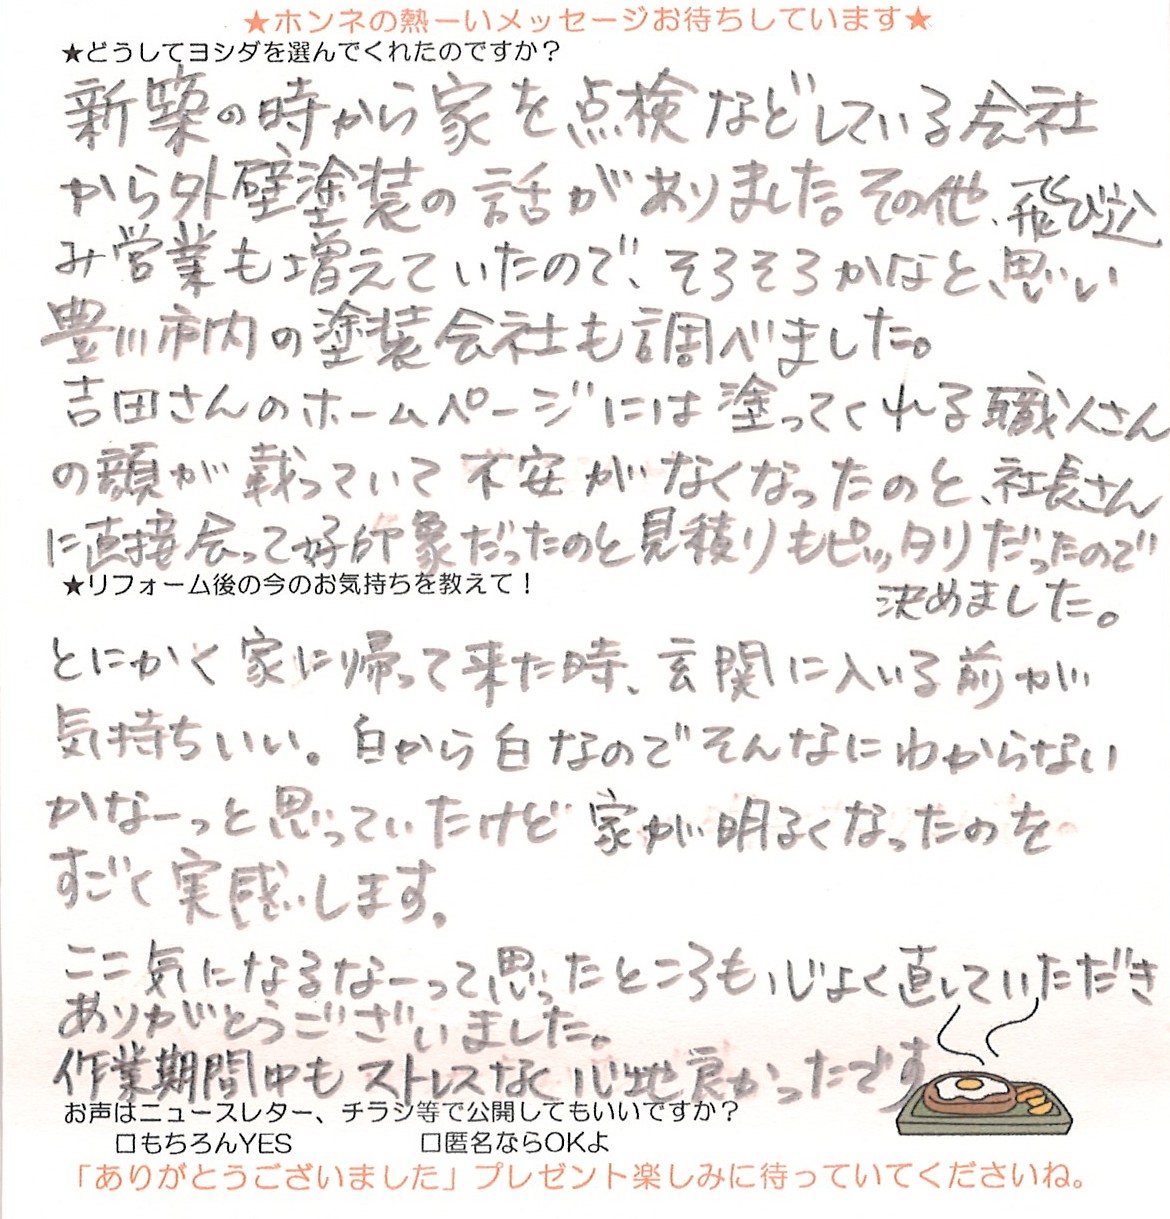 ★ホンネの熱ーいメッセージお待ちしています★
★どうしてヨシダを選んでくれたのですか？
新築の時から家を点検などしている会社
から外壁塗装の話がありました。その他、飛び込
み営業も増えていたので、そろそろかなと、思い
豊川市内の塗装会社も調べました。
吉田さんのホームページには塗ってくれる職人さん
の顔が載っていて不安がなくなったのと、社長さん
に直接会って好印象だったのと見積りもピッタリだったので
決めました。
★リフォーム後の今のお気持ちを教えて！
とにかく家に帰って来た時、玄関に入いる前が
気持ちいい。白から白なのでそんなにわからない
かなーっと思っていたけど家が明るくなったのを
すごく実感します。
ここ気になるなーって思ったところも心よく直していただき
ありがとうございました。
作業期間中もストレスなく心地良かったです
お声はニュースレター、チラシ等で公開してもいいですか？
□もちろんYES □匿名ならOKよ
「ありがとうございました」プレゼント楽しみに待っていてくださいね。